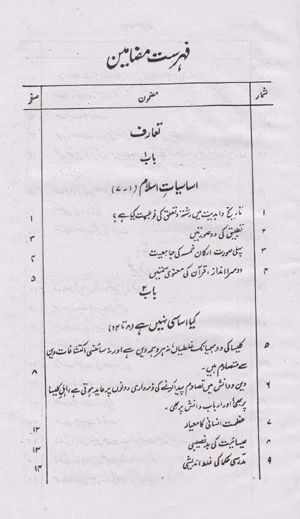 فہرست مضامین
شمار مضمون صفحہ
تعارف
باب ۱
اساسیاتِ اسلام (۱ - ۷)
۱ تاریخ و ابدیت میں رشتہ و تعلق کی نوعیت کیا ہے؟ ۱
۲ تطبیق کی دو صورتیں ۳
۳ پہلی صورت ارکانِ خمسہ کی جامعیت ۴
۴ دوسرا انداز، قرآن کی معنوی سمتیں ۵
باب ۲
کیا اساسی نہیں ہے (۸ تا ۱۴)
۵ کلیسا کی دو بھیانک غلطیاں نہ ہر وجہ دین ہے اور نہ سائنسی اکتشافات دین
سے متصادم ہیں۔ ۸
۶ دین و دانش میں تصادم پیدا کرنے کی ذمہ داری دونوں پر عاید ہوتی ہے، اہلِ کلیسا
پر بھی اور اربابِ دانش پر بھی۔
۷ عظمتِ انسانی کا معیار ۱۲
۸ عیسائیت کی بدنصیبی ۱۳
۹ مدرسی حکما کی غلط اندیشی ۱۴